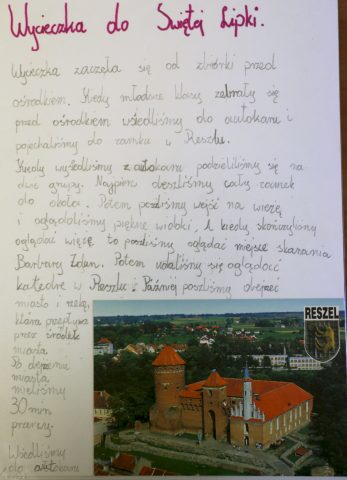 Wycieczka do Świętej Lipki.
Wycieczka zaczęła się od zbiórki przed
ośrodkiem. Kiedy młodsze klasy zebrały się
przed ośrodkiem wsiedliśmy do autokaru i
pojechaliśmy do zamku w Reszlu.
Kiedy wysiedliśmy z autokaru podzieliliśmy się na
dwie grupy. Najpierw obeszliśmy cały zamek
do okoła. Potem poszliśmy wejść na wieżę
i oglądaliśmy piękne widoki, A kiedy skończyliśmy
oglądać wieżę to poszliśmy oglądać miejsce skazania
Barbary Zdun. Potem udaliśmy się oglądać
katedrę w Reszlu. Później poszliśmy obejrzeć
miasto i rzekę,
która przepływa
przez środek
miasta
Po obejrzeniu
miasta
mieliśmy
30 min
przerwy.
Wsiedliśmy
do autokaru
RESZEL